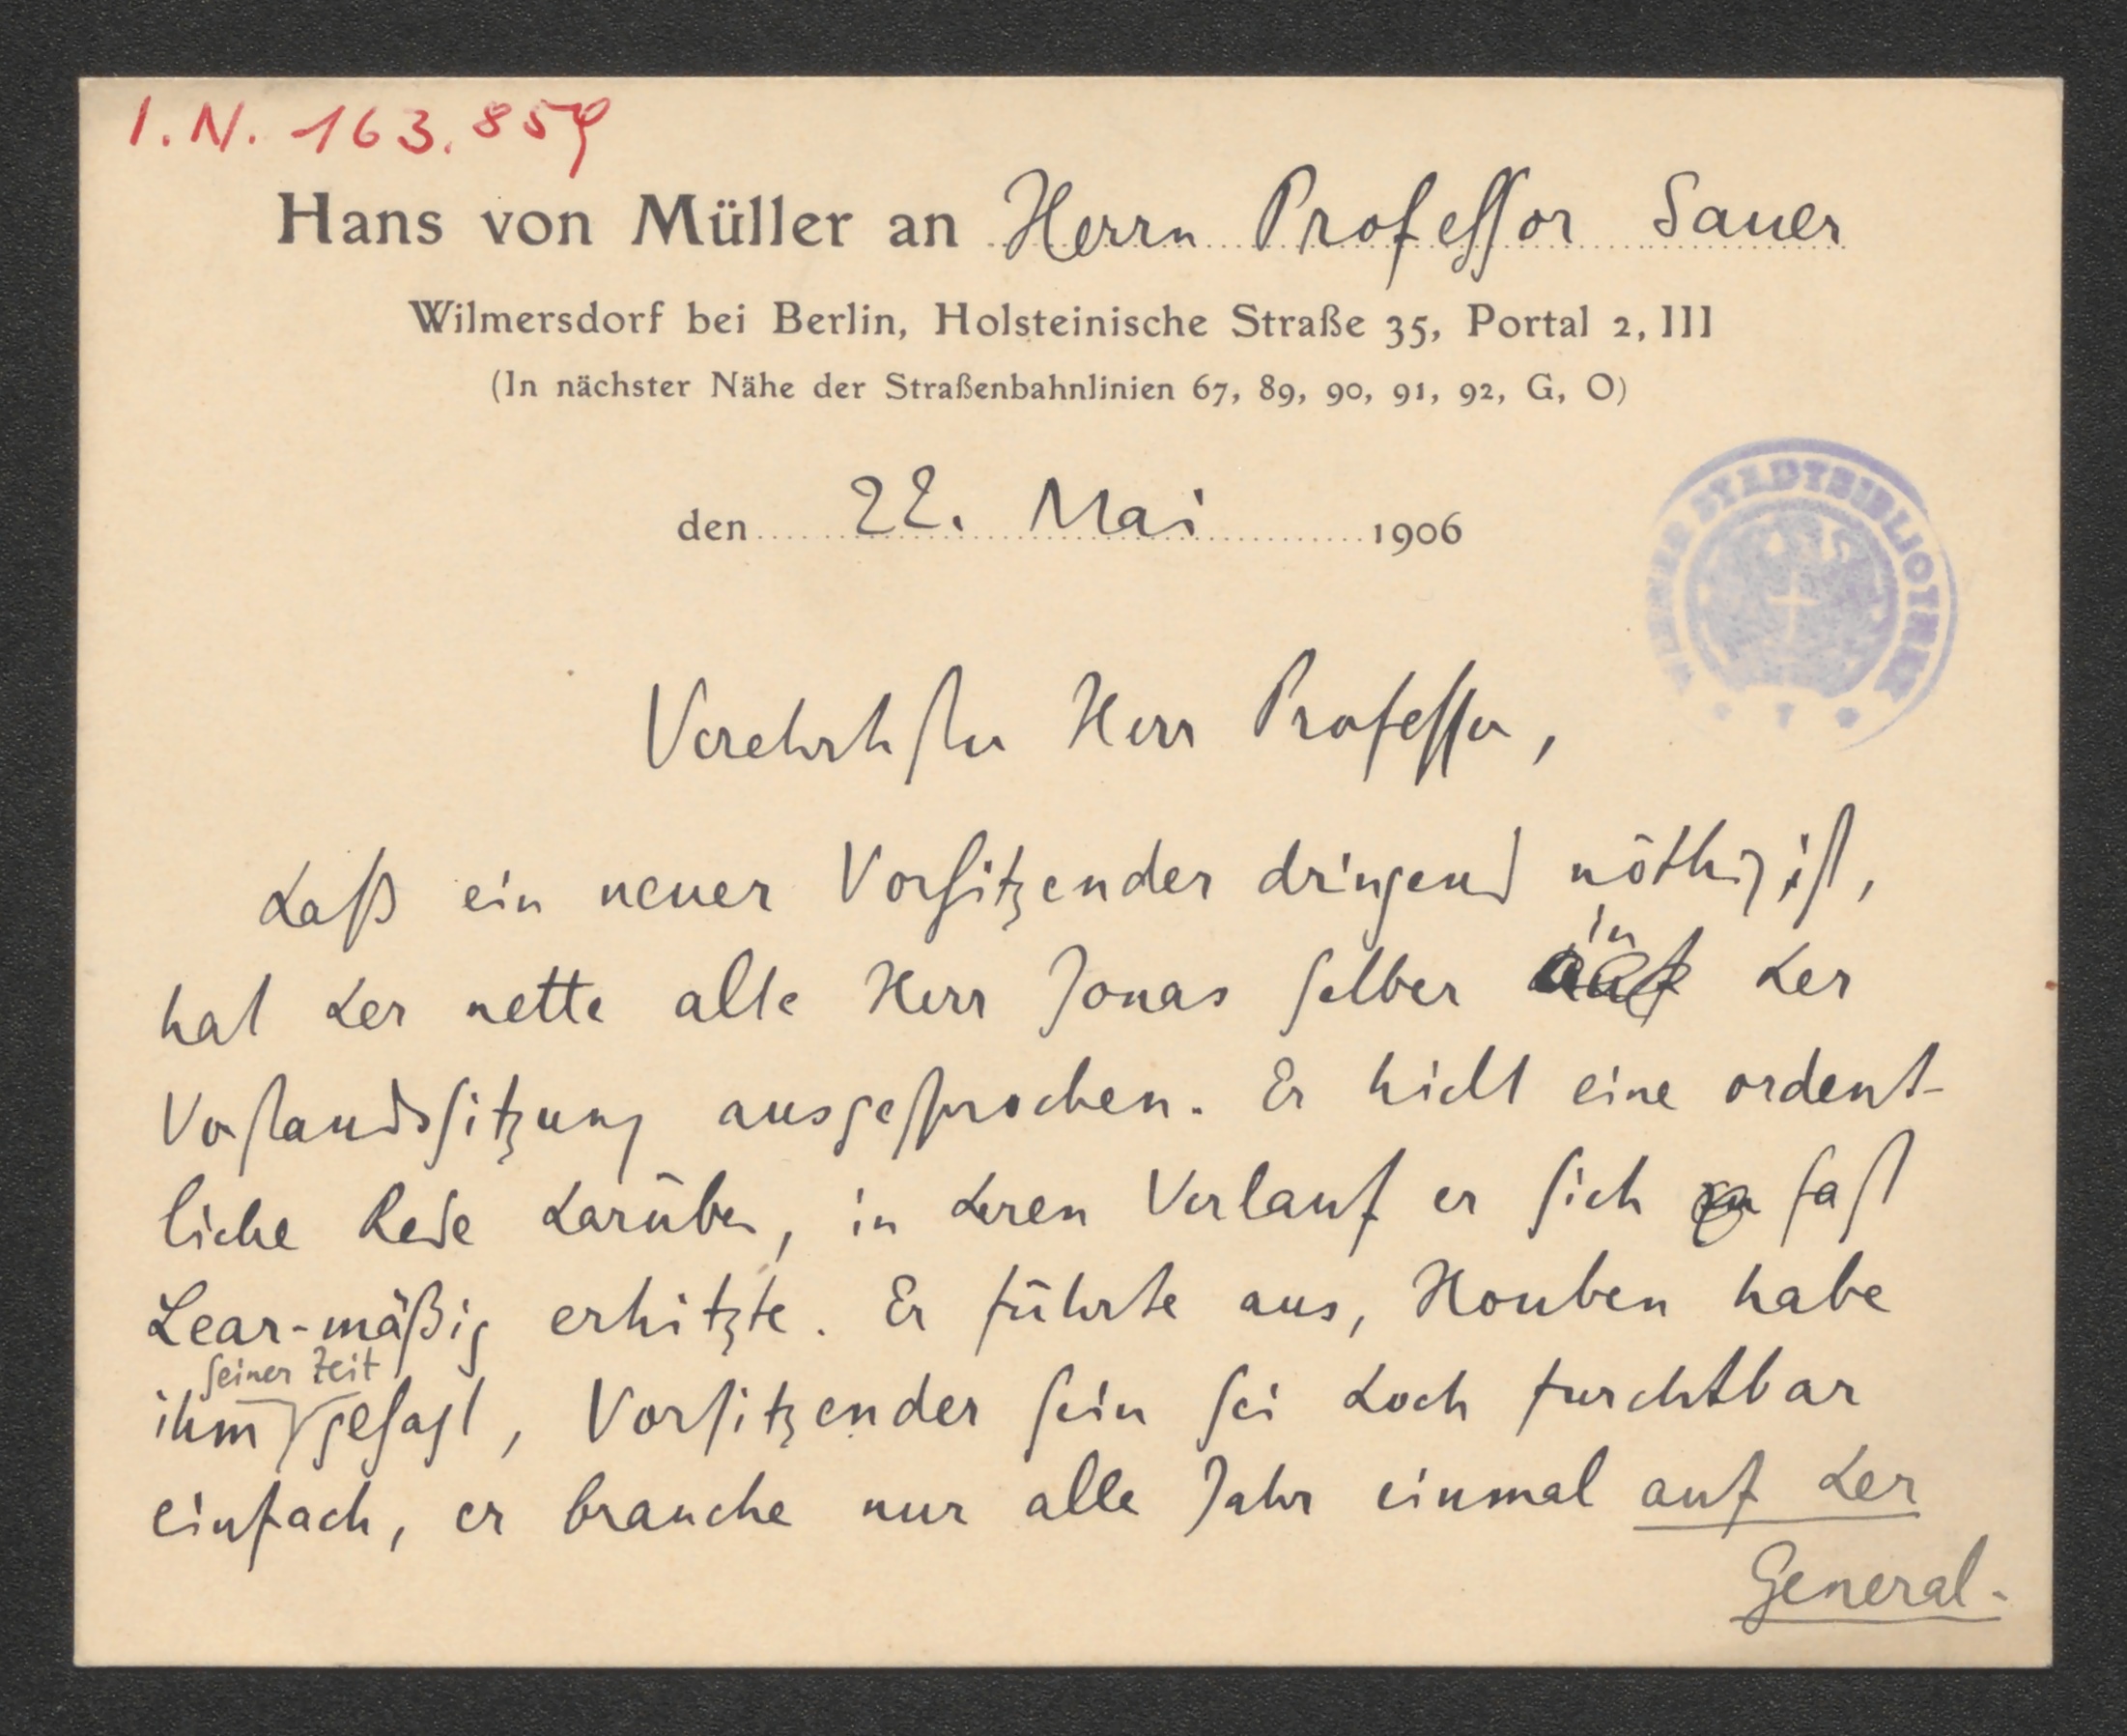 I. N. 163.859
Hans von Müller an Herrn Professor Sauer
Wilmersdorf bei Berlin, Holsteinische Straße 35, Portal 2, III
(In nächster Nähe der Straßenbahnlinien 67, 89, 90, 91, 92, G, O)
den 22. Mai 1906
WIENER STADTBIBLIOTHEK
Verehrtester Herr Professor,
daß ein neuer Vorsitzender dringend nöthig ist,
in
hat der nette alte Herr Jonas selber auf der
Vorstandssitzung ausgesprochen. Er hielt eine ordent-
liche Rede darüber, in deren Verlauf er sich fast
Lear-mäßig erhitzte. Er führte aus, Houben habe
seiner Zeit
ihm gesagt, Vorsitzender sein sei doch furchtbar
einfach, er brauche nur alle Jahr einmal auf der
General-